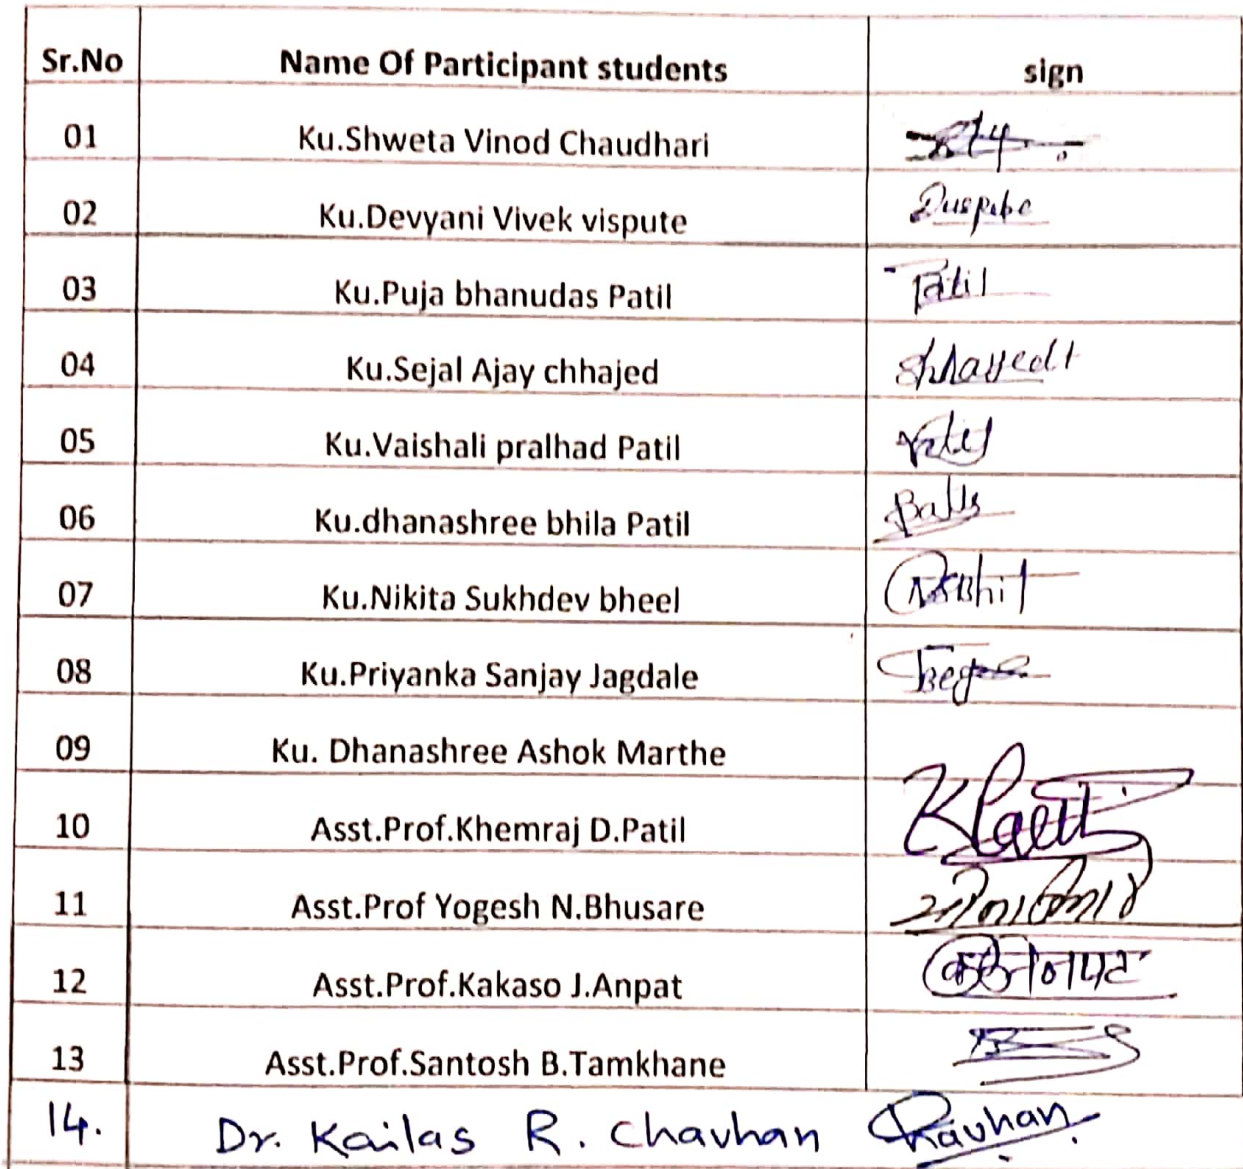 Sr.No Name Of Participant students sign
01 Ku.Shweta Vinod Chaudhari
02 Ku.Devyani Vivek vispute
03 Ku.Puja bhanudas Patil Patil
04 Ku.Sejal Ajay chhajed
05 Ku.Vaishali pralhad Patil
06 Ku.dhanashree bhila Patil
07 Ku.Nikita Sukhdev bheel
08 Ku.Priyanka Sanjay Jagdale
09 Ku. Dhanashree Ashok Marthe
10 Asst.Prof.Khemraj D.Patil
11 Asst.Prof Yogesh N.Bhusare
12 Asst.Prof.Kakaso J.Anpat
13 Asst.Prof.Santosh B.Tamkhane
14. Dr. Kailas R. Chavhan